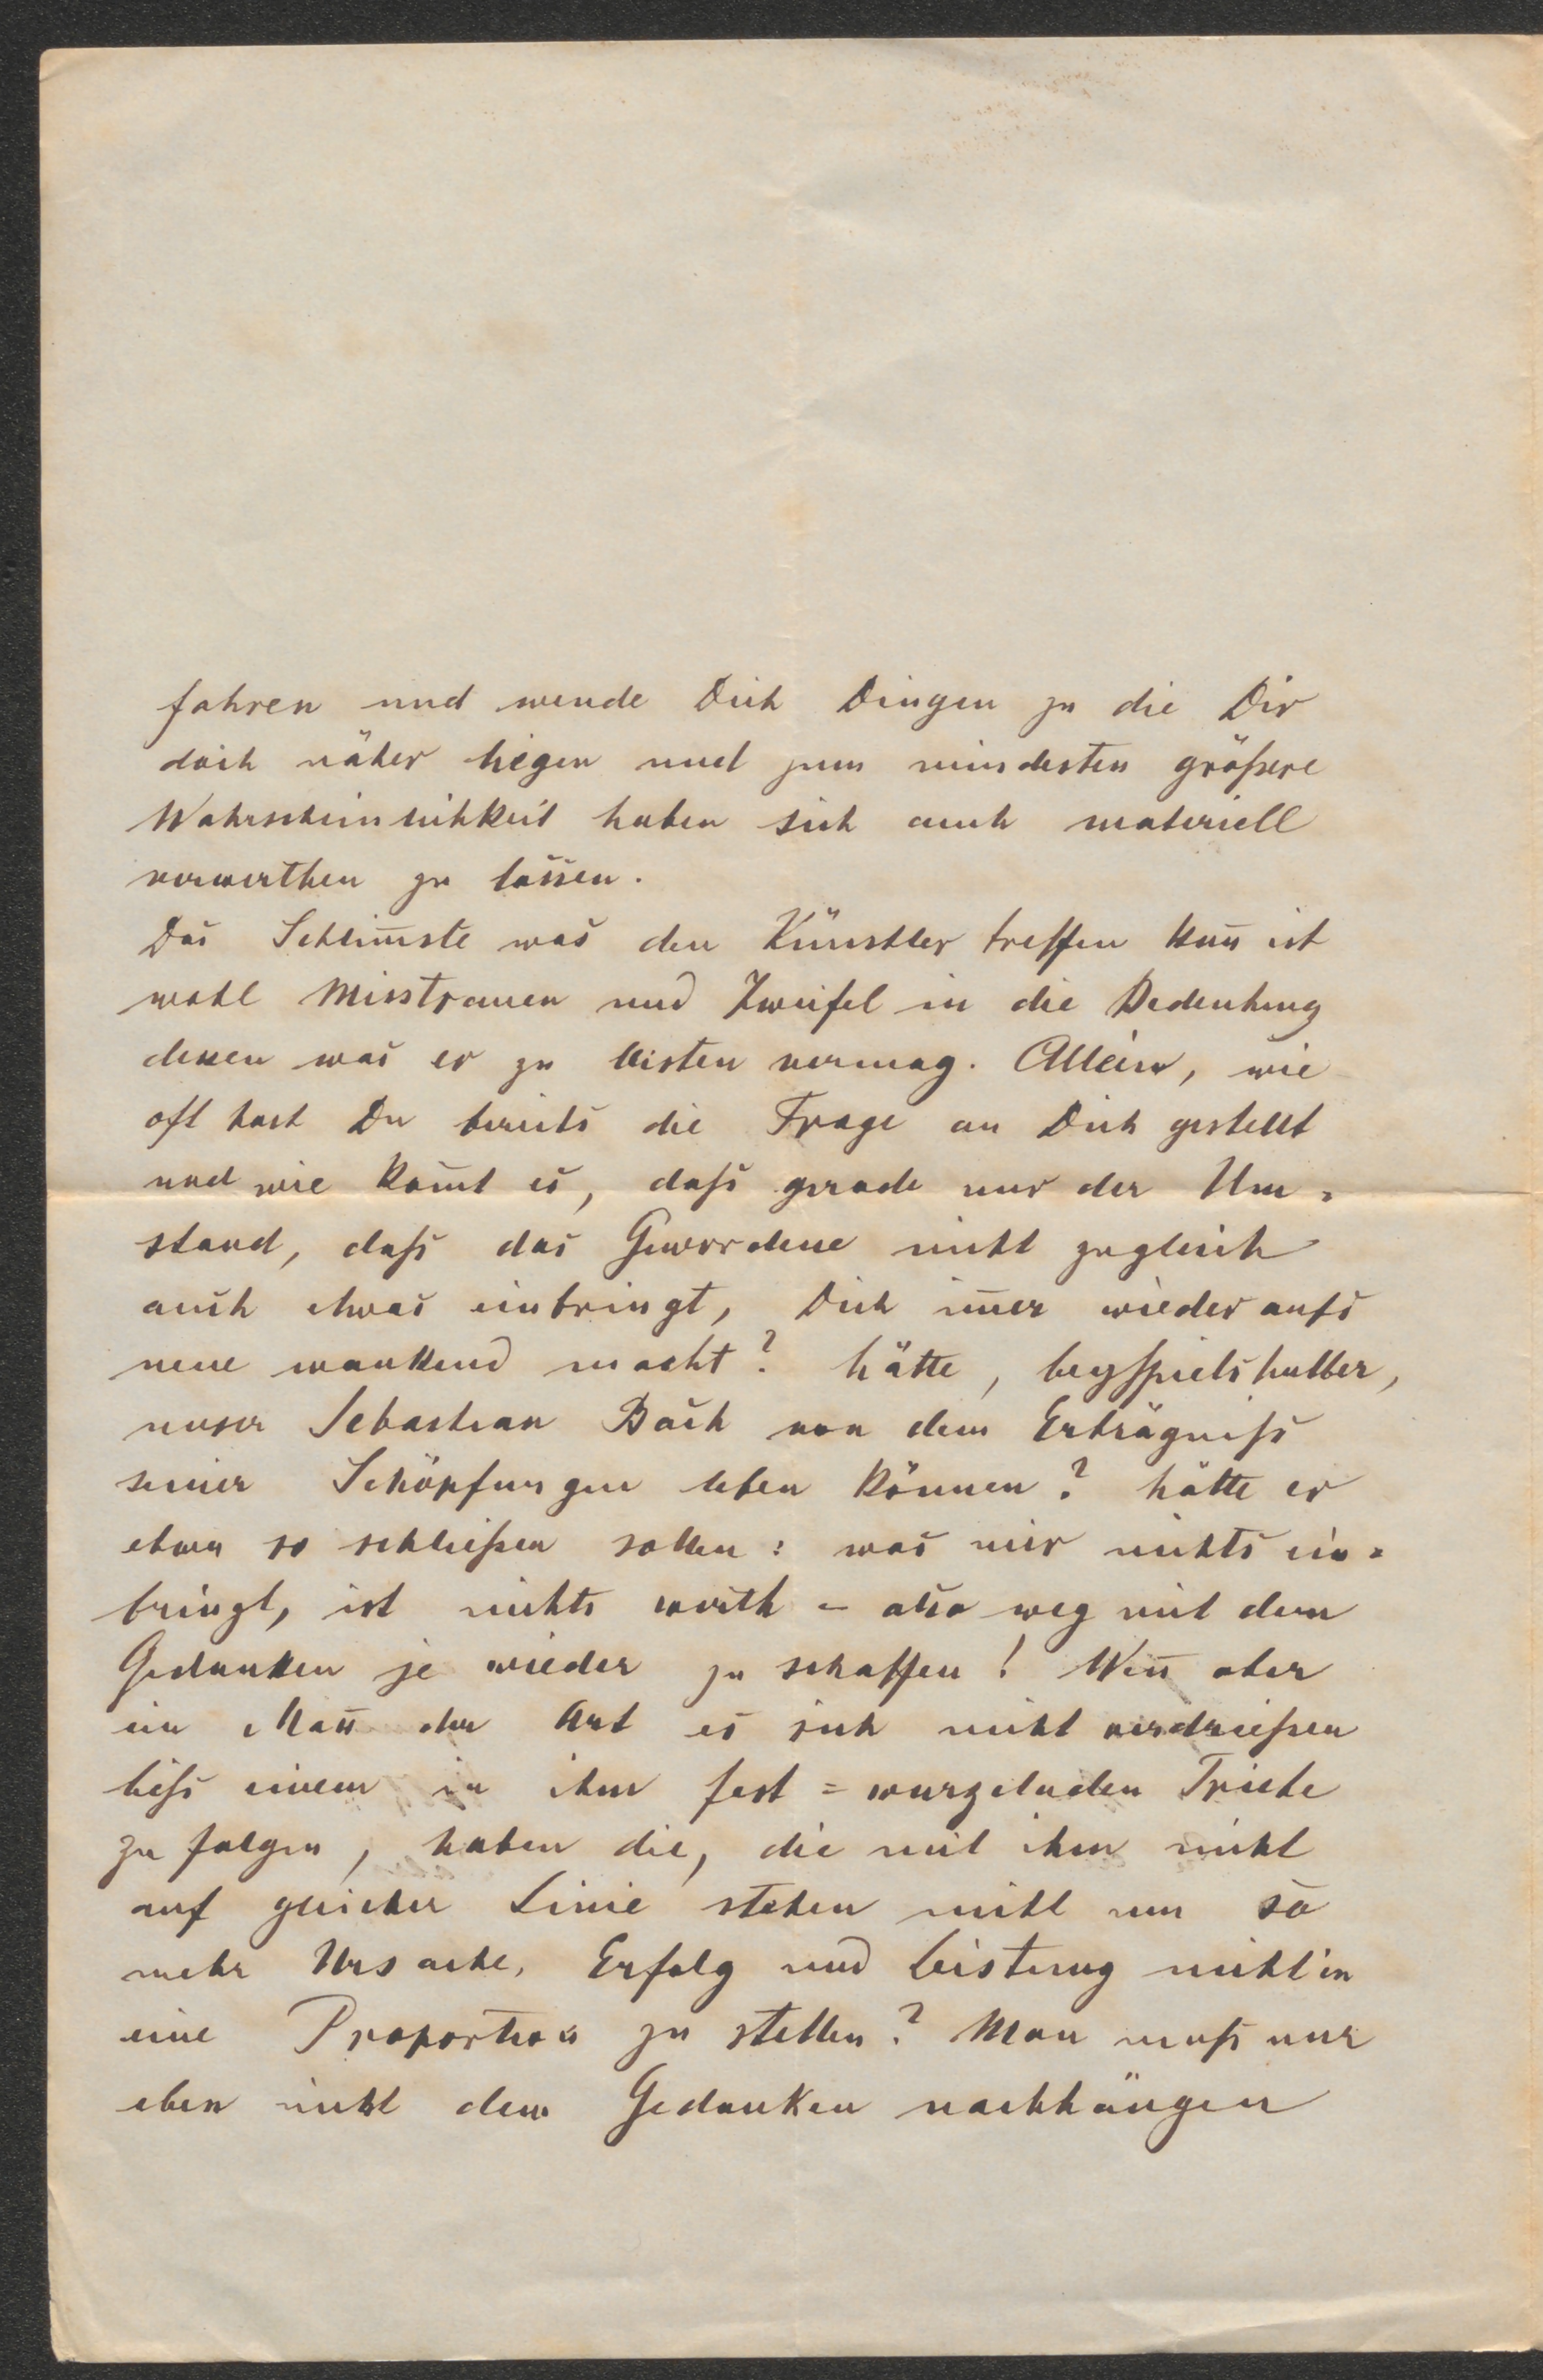 fahren und wende Dich Dingen zu die Dir
doch näher liegen und zum mindesten größere
Wahrscheinlichkeit haben sich auch materiell
verwerthen zu lassen.
Das Schlim̅ste was den Künstler treffen kan̅ ist
wohl Misstrauen und Zweifel in die Bedeutung
dessen was er zu leisten vermag. Allein, wie
oft hast Du bereits die Frage an Dich gestellt
und wie kom̅t es, daſs gerade nur der Um=
stand, daſs das Gewordene nicht zugleich
auch etwas einbringt, Dich im̅er wieder aufs
neue wankend macht? hätte, beyspielshalber,
unser Sebastian Bach von dem Erträgniſs
seiner Schöpfungen leben können? hätte er
etwa so schließen sollen: was mir nichts ein=
bringt, ist nichts werth – also weg mit dem
Gedanken je wieder zu schaffen! Wen̅ aber
ein Man̅ der Art es sich nicht verdrießen
ließ einem in ihm fest=wurzelnden Triebe
zu folgen, haben die, die mit ihm nicht
auf gleicher Linie stehen nicht um so
mehr Ursache, Erfolg und Leistung nicht in
eine Proportion zu stellen? Man muſs nur
eben nicht dem Gedanken nachhängen